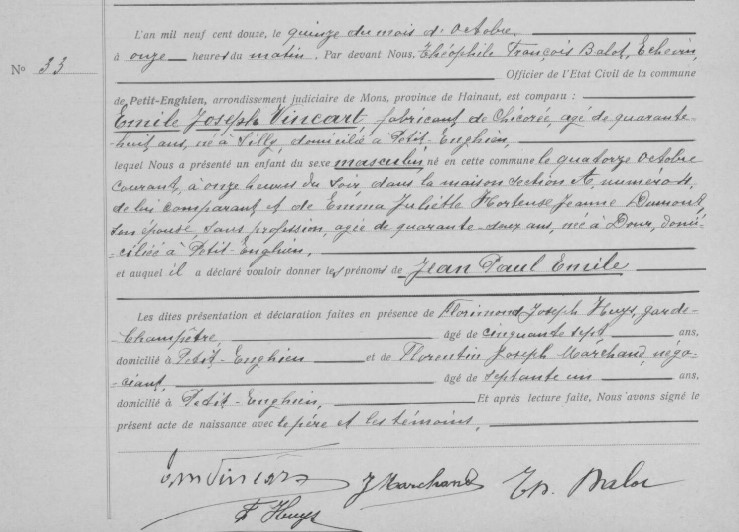 L'an mil neuf cent douze, le quinze du mois d'Octobre,
à onze heures du matin. Par devant Nous, Théophile François Balot, Echevin,
N° 33
Officier de l'Etat Civil de la commune
de Petit-Enghien, arrondissement judiciaire de Mons, province de Hainaut, est comparu :
Emile Joseph Vincart, fabricant de Chicorée, agé de quarante-
-huit ans, né à Silly, domicilié à Petit-Enghien,
lequel Nous a présenté un enfant du sexe masculin, né en cette commune le quatorze Octobre
courant, à onze heures du soir, dans la maison section A, numéro 4,
de lui comparant et de Emma Juliette Hortense Jeanne Dumont,
son épouse, sans profession, agée de quarante-deux ans, née à Dour, domi-
-ciliée à Petit-Enghien,
et auquel il a déclaré vouloir donner les prénoms de Jean Paul Emile
Les dites présentation et déclaration faites en présence de Florimond Joseph Huys, garde-
-champêtre, âgé de cinquante sept ans,
domicilié à Petit-Enghien et de Florentin Joseph Marchand, négo-
-ciant, âgé de septante un ans,
domicilié à Petit-Enghien, Et après lecture faite, Nous avons signé le
présent acte de naissance avec le père et les témoins.
EmVincart J Marchand Th. Balot
F Huys